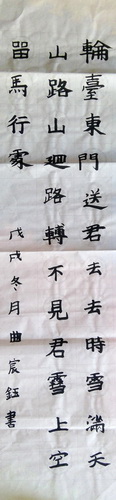 輪臺東門送君去去時雪滿天
山路山迴路轉不見君雪上空
留馬行處
戊戌冬月曲宸鈺書